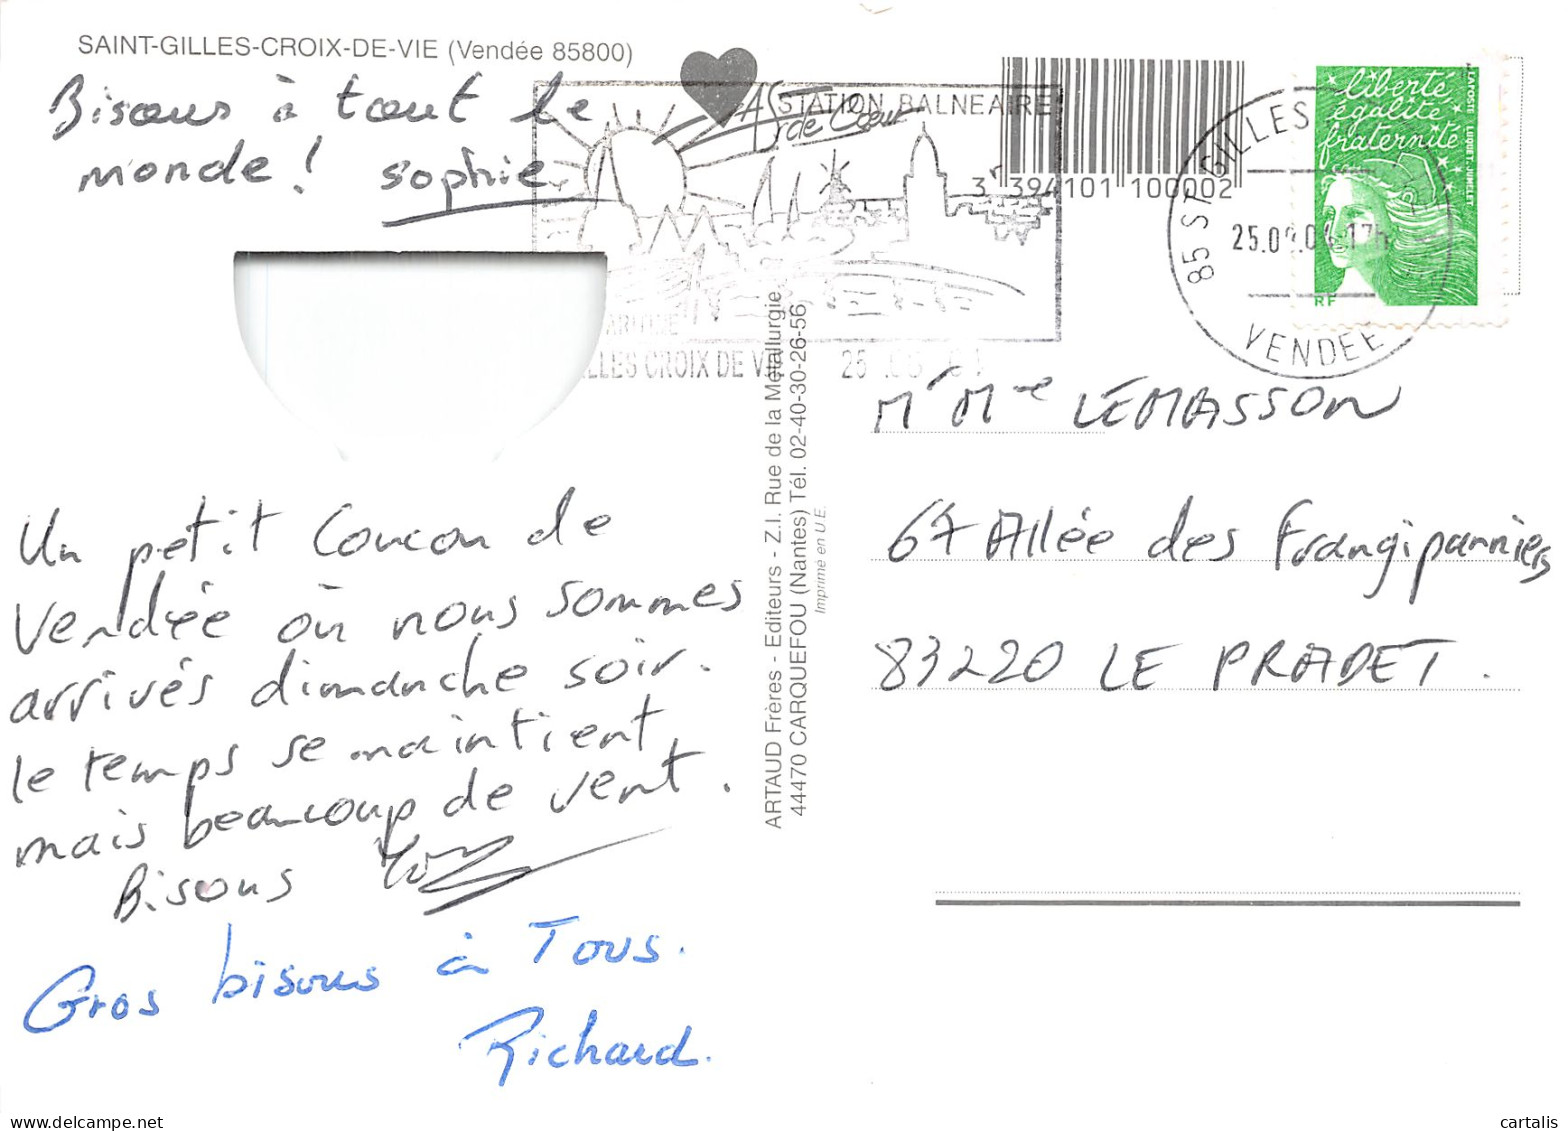 SAINT-GILLES-CROIX-DE-VIE (Vendée 85800)
Bisous à tout le
monde! sophie
AS de Cœur
STATION BALNEAIRE
LLES CROIX DE VI
3 394101 100002
85 ST GILLES
25.0
17h
VENDEE
liberté
égalité
fraternité
LA POSTE
LUQUET JUMELET
RF
Un petit Coucou de
Vendée où nous sommes
arrivés dimanche soir.
le temps se maintient
mais beaucoup de vent.
Bisous
Gros bisous à Tous.
Richard.
ARTAUD Frères - Editeurs - Z.I. Rue de la Métallurgie
44470 CARQUEFOU (Nantes) Tél. 02-40-30-26-56
Imprimé en U.E.
Mr Mme LEMASSON
67 Allée des Frangipanniers
83220 LE PRADET.
cartalis
delcampe.net